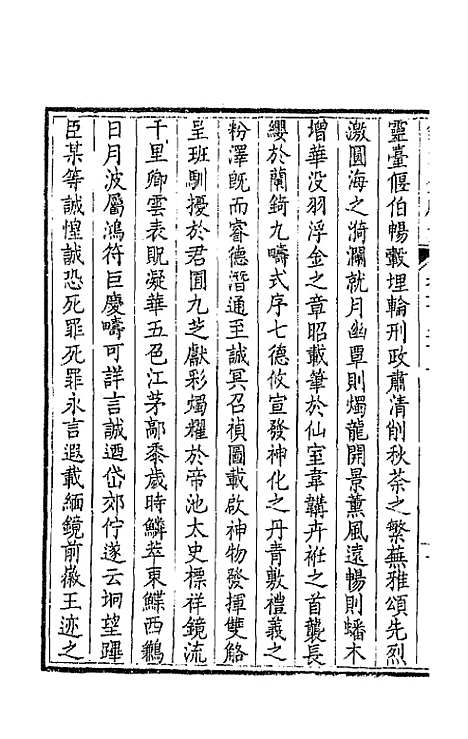 靈臺偃伯暢轂埋輪刑政肅清削秋荼之繁蕪雅頌先烈
激圓海之漪瀾就月幽覃則燭龍開景薰風遠暢則蟠木
增華没羽浮金之章昭載筆於仙室韋韝卉袵之首襲長
纓於蘭錡九疇式序七德攸宣發神化之丹青敷禮義之
粉澤旣而睿德潛通至誠冥召禎圖載啟神物發揮雙觡
呈班馴擾於君囿九芝獻彩燭耀於帝池太史標祥鏡流
千里卿雲表貺凝華五色江茅鄗黍歲時鱗萃東鰈西鶼
日月波屬鴻符巨慶疇可詳言誠迺岱郊佇遂云坰望蹕
臣某等誠惶誠恐死罪死罪永言遐載緬鏡前徽王迹之